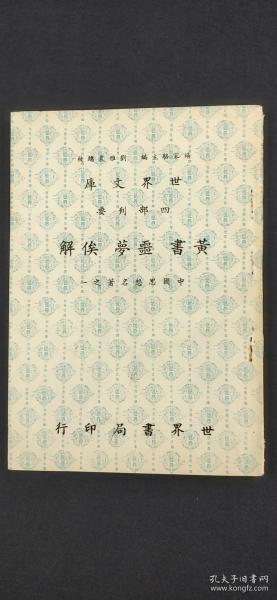 楊家駱主編 劉雅農總校
世界文庫
四部刊要
黃書 噩夢 俟解
中國思想名著之一
世界書局印行
孔夫子旧书网